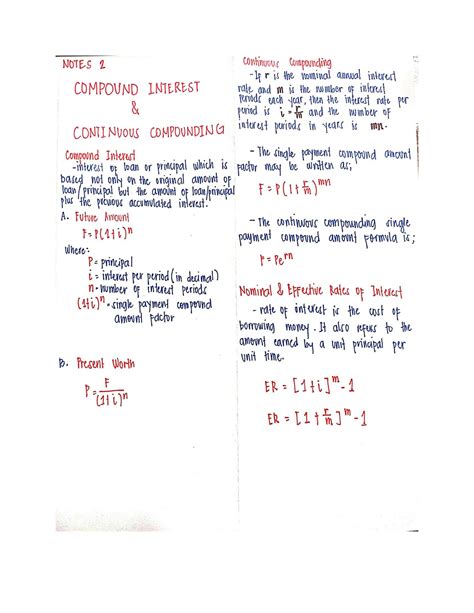 NOTES 2
COMPOUND INTEREST
&
CONTINUOUS COMPOUNDING
Compound Interest
-interest of loan or principal which is
based not only on the original amount of
loan/principal but the amount of loan/principal
plus the previous accumulated interest.
A. Future Amount
F=P(1+i)^n
where:
P= principal
i = interest per period (in decimal)
n = number of interest periods
(1+i)^n = single payment compound
amount factor
B. Present Worth
P = F/(1+i)^n
Continuous Compounding
- If r is the nominal annual interest
rate and m is the number of interest
periods each year, then the interest rate per
period is i = r/m and the number of
interest periods in years is mn.
- The single payment compound amount
factor may be written as;
F = P(1+r/m)^mn
- The continuous compounding single
payment compound amount formula is;
F = Pe^rn
Nominal & Effective Rates of Interest
- rate of interest is the cost of
borrowing money. It also refers to the
amount earned by a unit principal per
unit time.
ER = [1+i]^m - 1
ER = [1+r/m]^m - 1